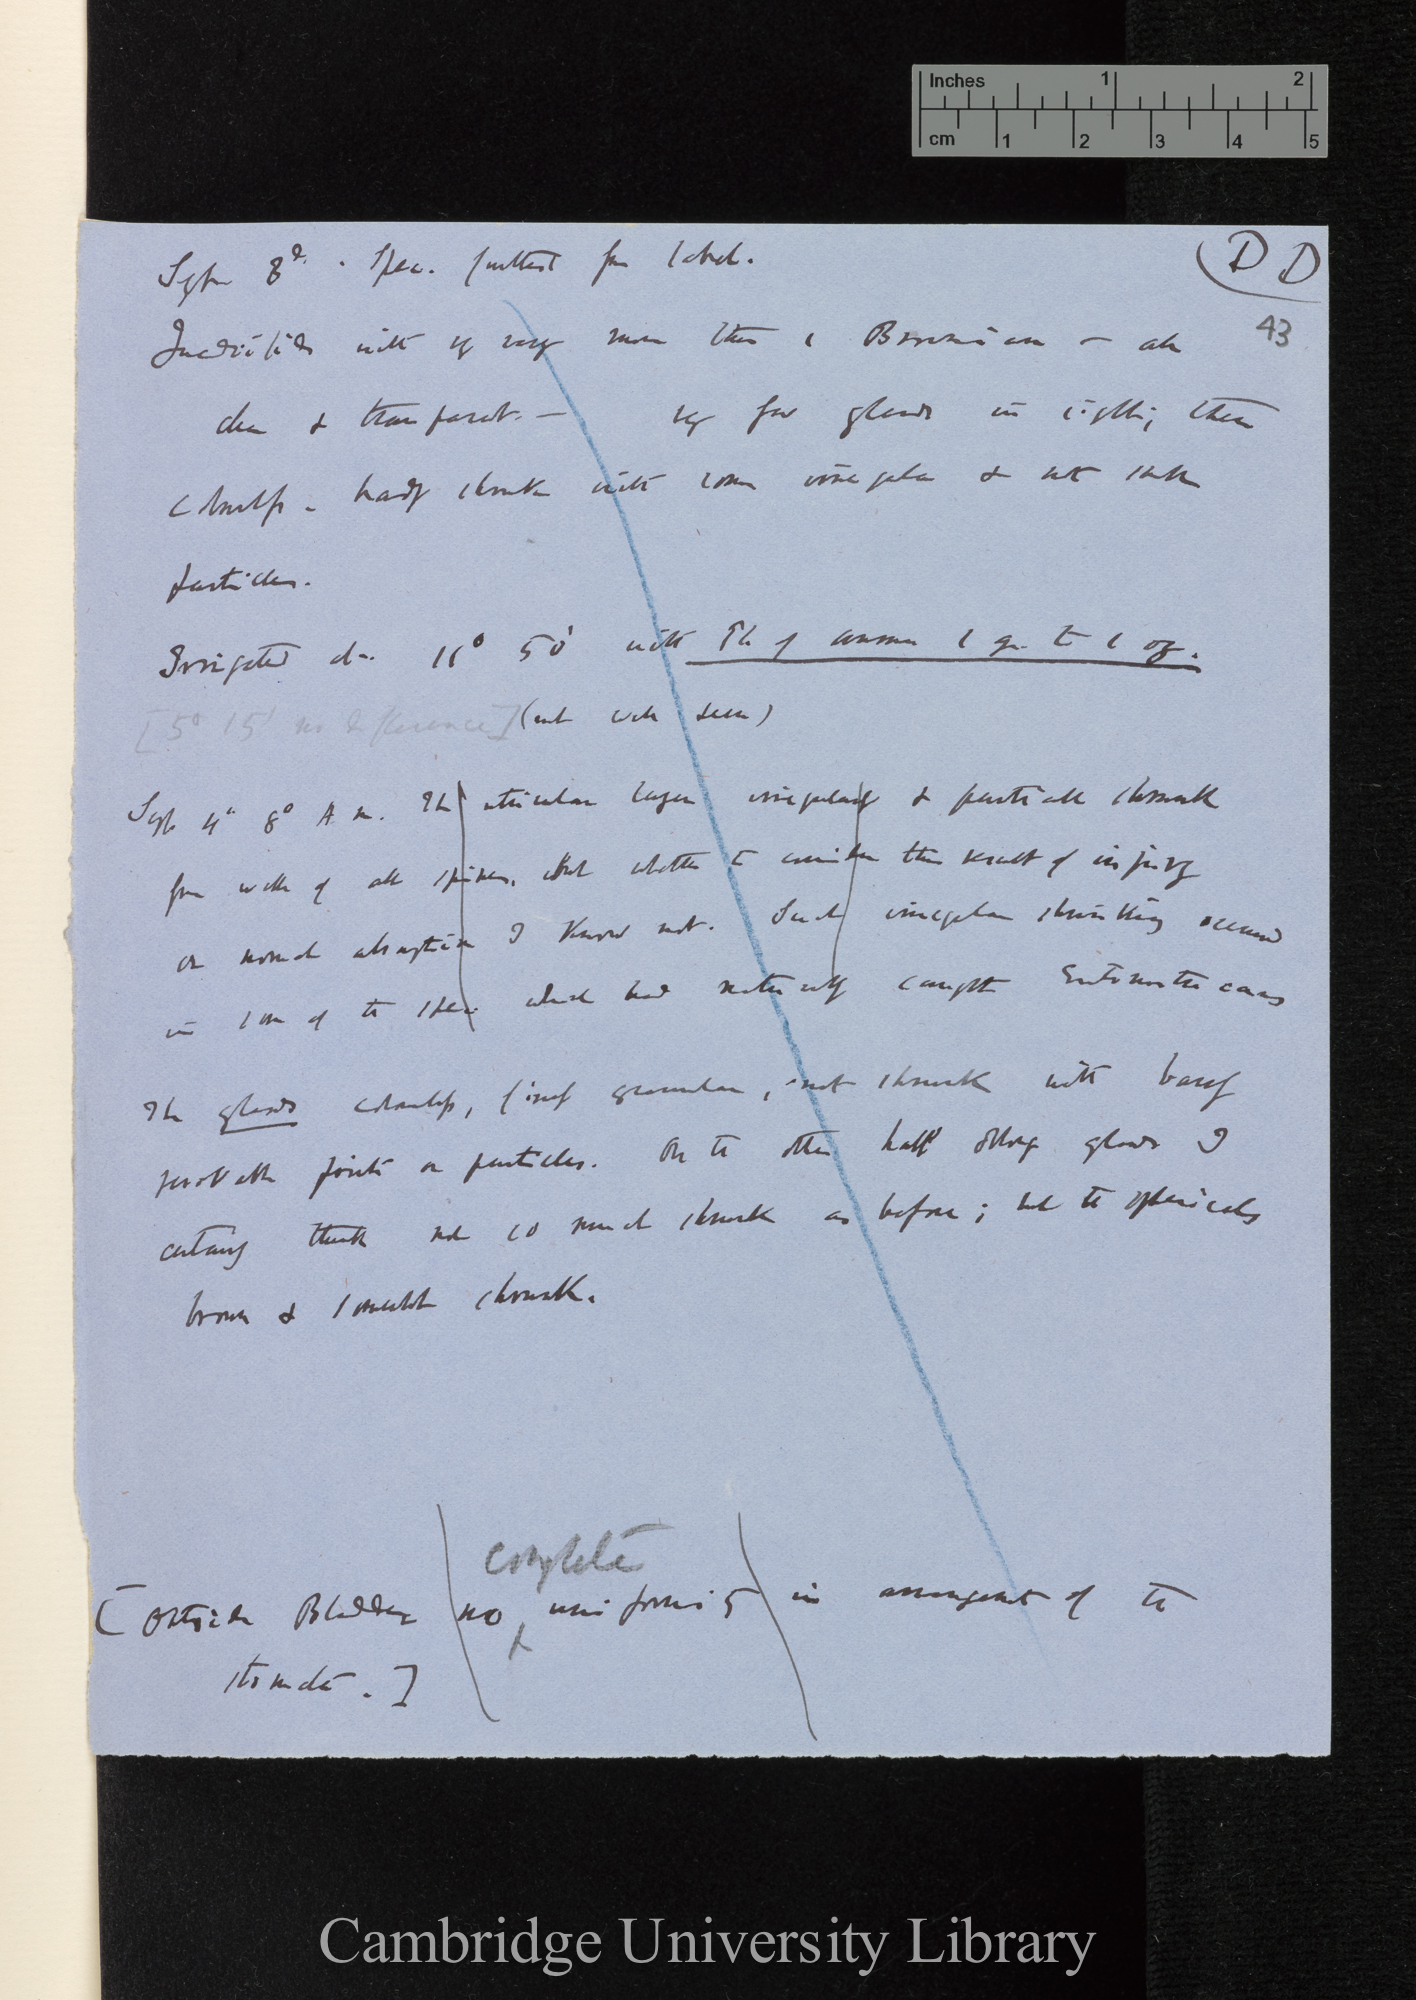 Inches 1 2
cm 1 2 3 4 5
(D D
43
Sept 3d. Spec. furthest from label.
Quadrifids with very more than a Brownian — all
clear & transparent. — very few glands in sight; these
colourless. hardly shrunk with some irregular & not
particles.
Irrigated do. 11° 50' with Ph of ammon 1 gr. to 1 oz.
[5° 15' no difference] (not well seen)
Sept 4th 8° A.m. The utricular layer irregularly & partially shrunk
from walls of all spines. But whether to consider this result of injury
or normal absorption I know not. Such irregular shrinking occurred
in some of the Spec. which had naturally caught Entomostracans
The glands colourless, finely granular, not shrunk with barely
perceptible points or particles. On the other half oblong glands I
certainly think not so much shrunk as before; but the sphericals
brown & somewhat shrunk.
complete
[Outside Bladder no uniformity in arrangement of the
stomata.]
Cambridge University Library